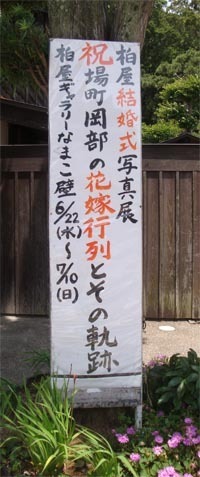 柏屋結婚式写真展
祝場町岡部の花嫁行列とその軌跡
柏屋ギャラリーなまこ壁 6/22(水)～7/10(日)